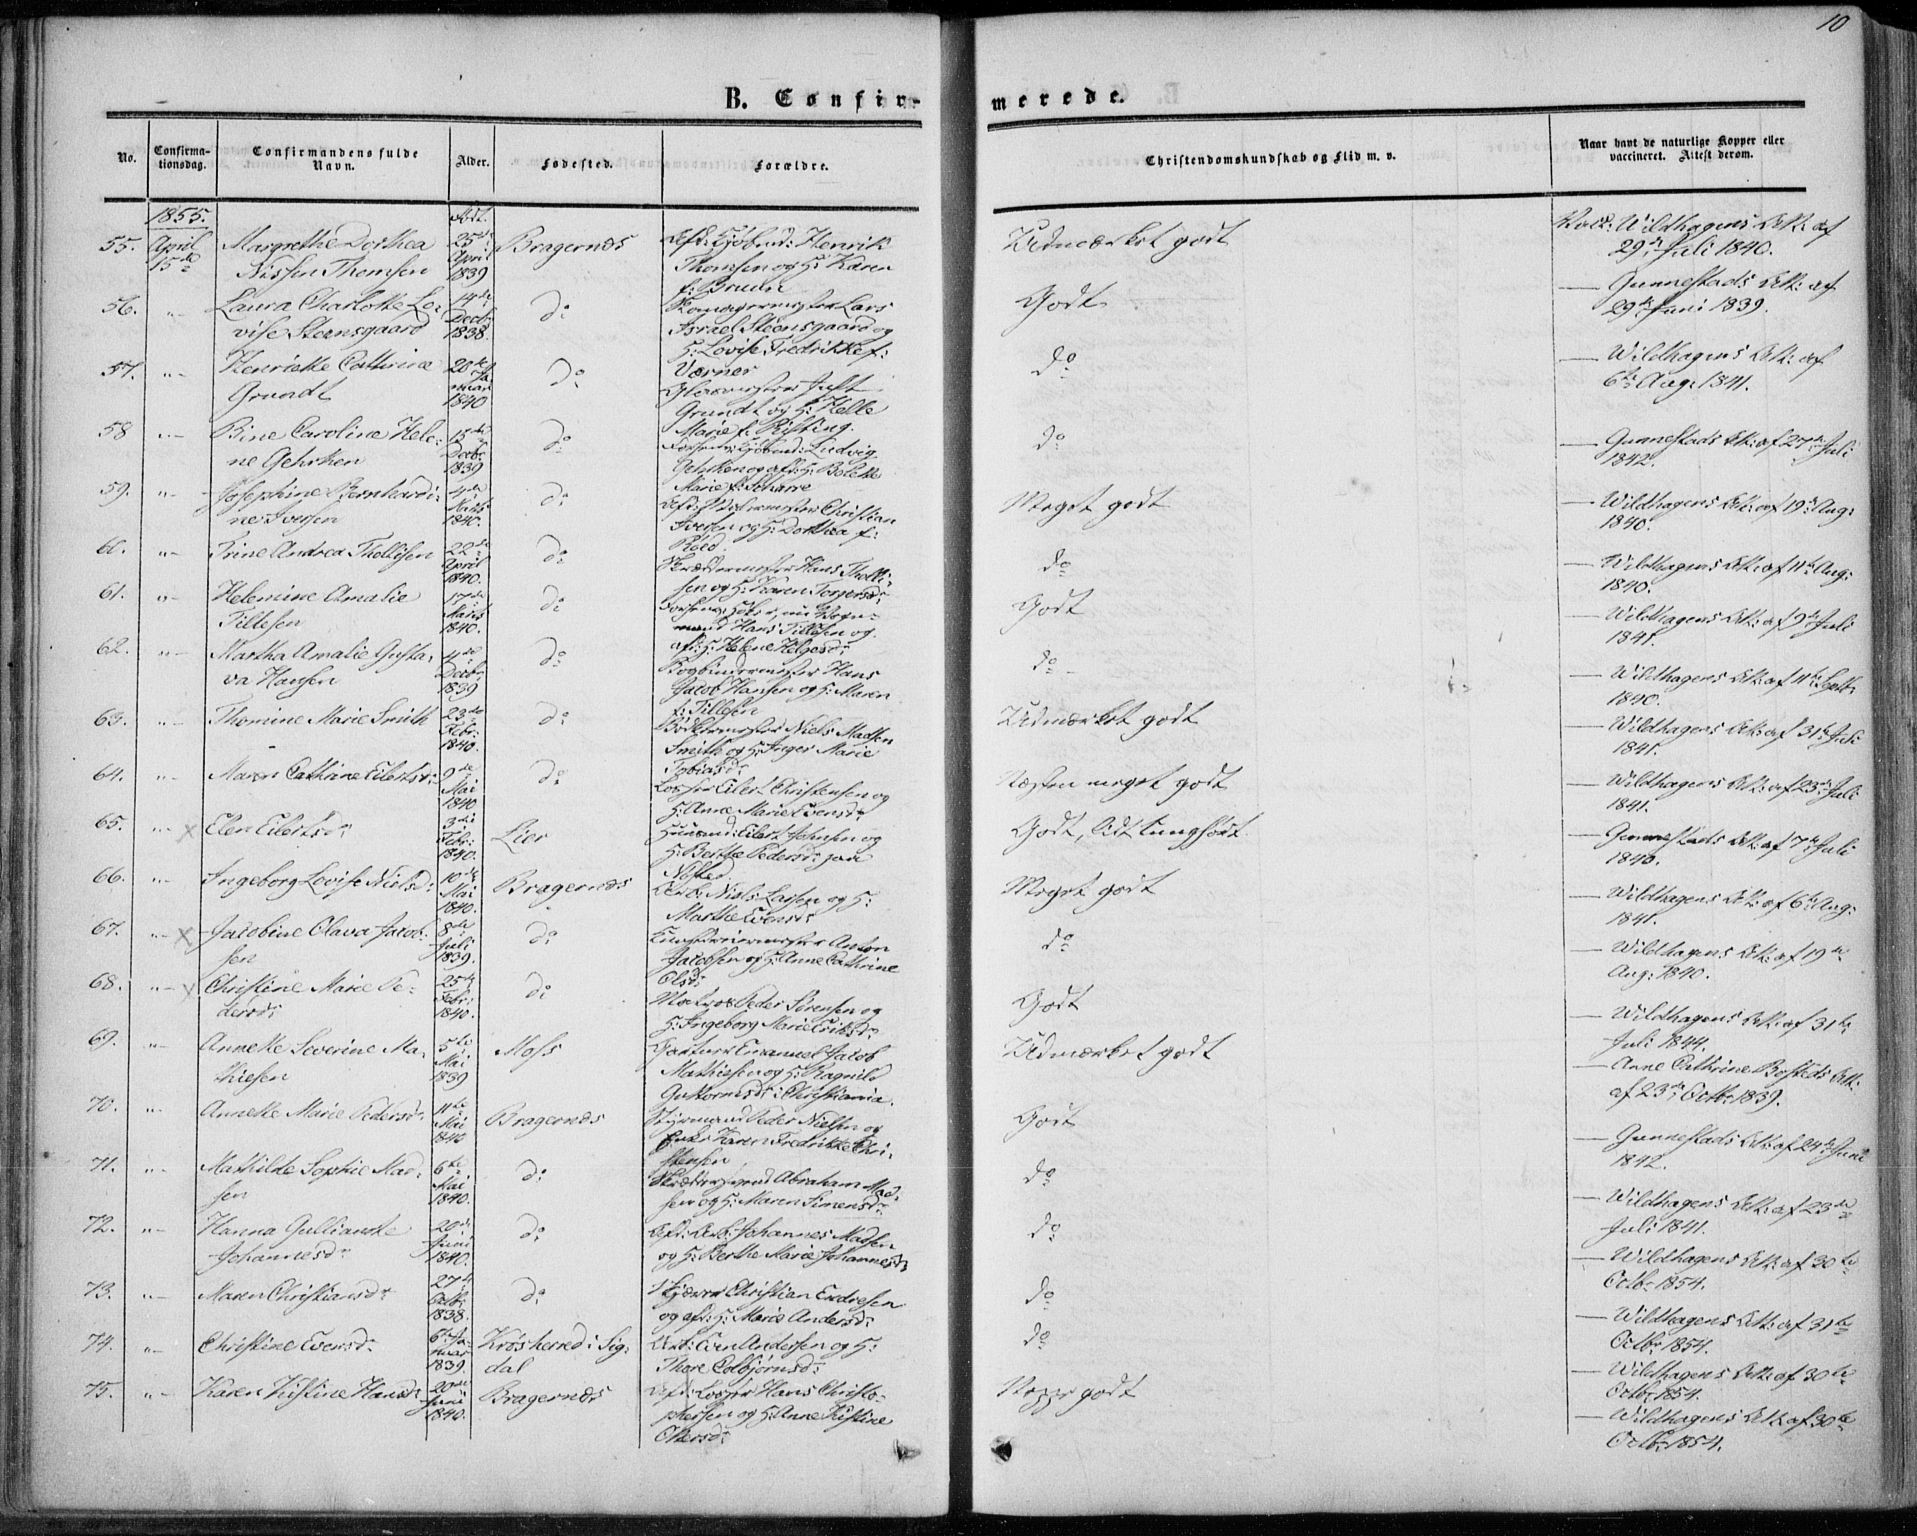 10
B. Confirmerede.
No.
Confirmationsdag.
Confirmandens fulde Navn.
Alder.
Fødested.
Forældre.
Christendomskundskab og Flid m. v.
Naar havt de naturlige Kopper eller vaccineret. Attest derom.
1855.
55. April 15de Margrethe Dorthea Nissen Thomsen 25de April 1839 Bragernæs Thomsen og H: Karen f: Bruun Udmærket godt Wildhagens Att: af 29de Juli 1840.
56. "- Laura Charlotte Lovise Steensgaard 14de Decbr 1838. do Lars Israel Steensgaard og H: Lovise Fredrikke f: Værner Godt Gunnestads Att: af 29de Juni 1839.
57. "- Henriette Cathrine Grundt 20de Januar 1840 do Glarmester Just Grundt og H: Helle Marie f. Risting. do — Wildhagens Att: af 6te Aug: 1841.
58 "- Bine Caroline Helene Gehrken 15de Decbr 1839 do Ludvig Gehrken og afd: H: Bolette Marie f. Scharre do — Gunnestads Att: af 27de Juli 1842.
59. "- Josephine Bernhardine Iversen 4de Marts 1840. do Christian Iversen og H: Dorthea f: Röed. Meget godt — Wildhagens Att: af 19de Aug: 1840.
60. "- Trine Andrea Thollesen 22de April 1840. do Skræddermester Hans Thollesen og H: Karen Torgersd: do — Wildhagens Att: af 11te Aug: 1840.
61. "- Helemine Amalie Tillesen 17de Marts 1840. do Hans Tillesen og afd: H: Helene Helgesd: Godt — Wildhagens Att: af 9de Juli 1841.
62. "- Martha Amalie Gustava Hansen 4de Decbr 1839 do Bogbindermester Hans Jacob Hansen og H: Maren f: Tillesen do — Wildhagens Att: af 11te Septbr 1840.
63. "- Thomine Marie Smith 23de Febr: 1840. do Bödkermester Niels Madsen Smith og H: Inger Marie Tobiasd: Udmærket godt — Wildhagens Att: af 31te Juli 1841.
64. "- Maren Cathrine Eilertsd: 9de Mai 1840 do Eilert Christensen og H: Anne Marie Evensd: Næsten meget godt — Wildhagens Att: af 23de Juli 1841.
65. "- x Elen Eilertsd: 3die Febr: 1840. Lier Huusmd: Eilert Johnsen og H: Berthe Pedersd: Godt, lidt tunghört. — Gunnestads Att: af 7de Juli 1840.
66. "- Ingeborg Lovise Nielsd: 10de Mai 1840. Bragernæs Arb: Niels Larsen og H: Marthe Evensd: Meget godt — Wildhagens Att: af 6te Aug: 1841.
67. "- x Jacobine Olava Jacobsen 8de Juli 1839. do Anton Jacobsen og H: Anne Cathrine Olsd: do — Wildhagens Att: af 19de Aug: 1840.
68. "- x Christine Marie Pedersd: 25de Febr: 1840. do Matros Peder Sörensen og H: Ingeborg Marie Eriksd: Godt — Wildhagens Att: af 31te Juli 1844.
69. "- Annette Severine Mathiesen 5te Mai 1839 Moss Gartner Emanuel Jacob Mathiesen og H: Ragnild Guttormsd: i Christiania. Udmærket godt — Anne Cathrine Bosteds Att: af 23de Octbr 1839.
70. "- Annette Marie Pedersd: 11te Mai 1840 Bragernæs Styrmand Peder Nielsen og Karen Fredrikke Christensen Godt — Gunnestads Att: af 24de Juni 1842.
71. "- Mathilde Sophie Madsen 6te Mai 1840. do Skræddersvend Abraham Madsen og H: Maren Simensd: do — Wildhagens Att: af 23de Juli 1841.
72. "- Hanna Gulliane Johannesd: 20de Juni 1840. do Afd: Arb: Johannes Madsen og H: Berthe Marie Johannesd: do — Wildhagens Att: af 30te Octbr 1854.
73. "- Maren Christiansd: 27de Octbr 1838. do Christian Endresen og afd: H: Marie Andersd: do — Wildhagens Att: af 31te Octbr 1854.
74. "- Christine Evensd: 6te Januar 1839. Krösherred i Sigdal Arb: Even Andersen og H: Thore Colbjörnsd: do — Wildhagens Att: af 30te Octbr 1854.
75. "- Karen Kistine Hansd: 20de Juni 1840. Bragernæs Hans Christophersen og H: Anne Kistine Ottersd: Noppe godt — Wildhagens Att: af 30te Octbr 1854.